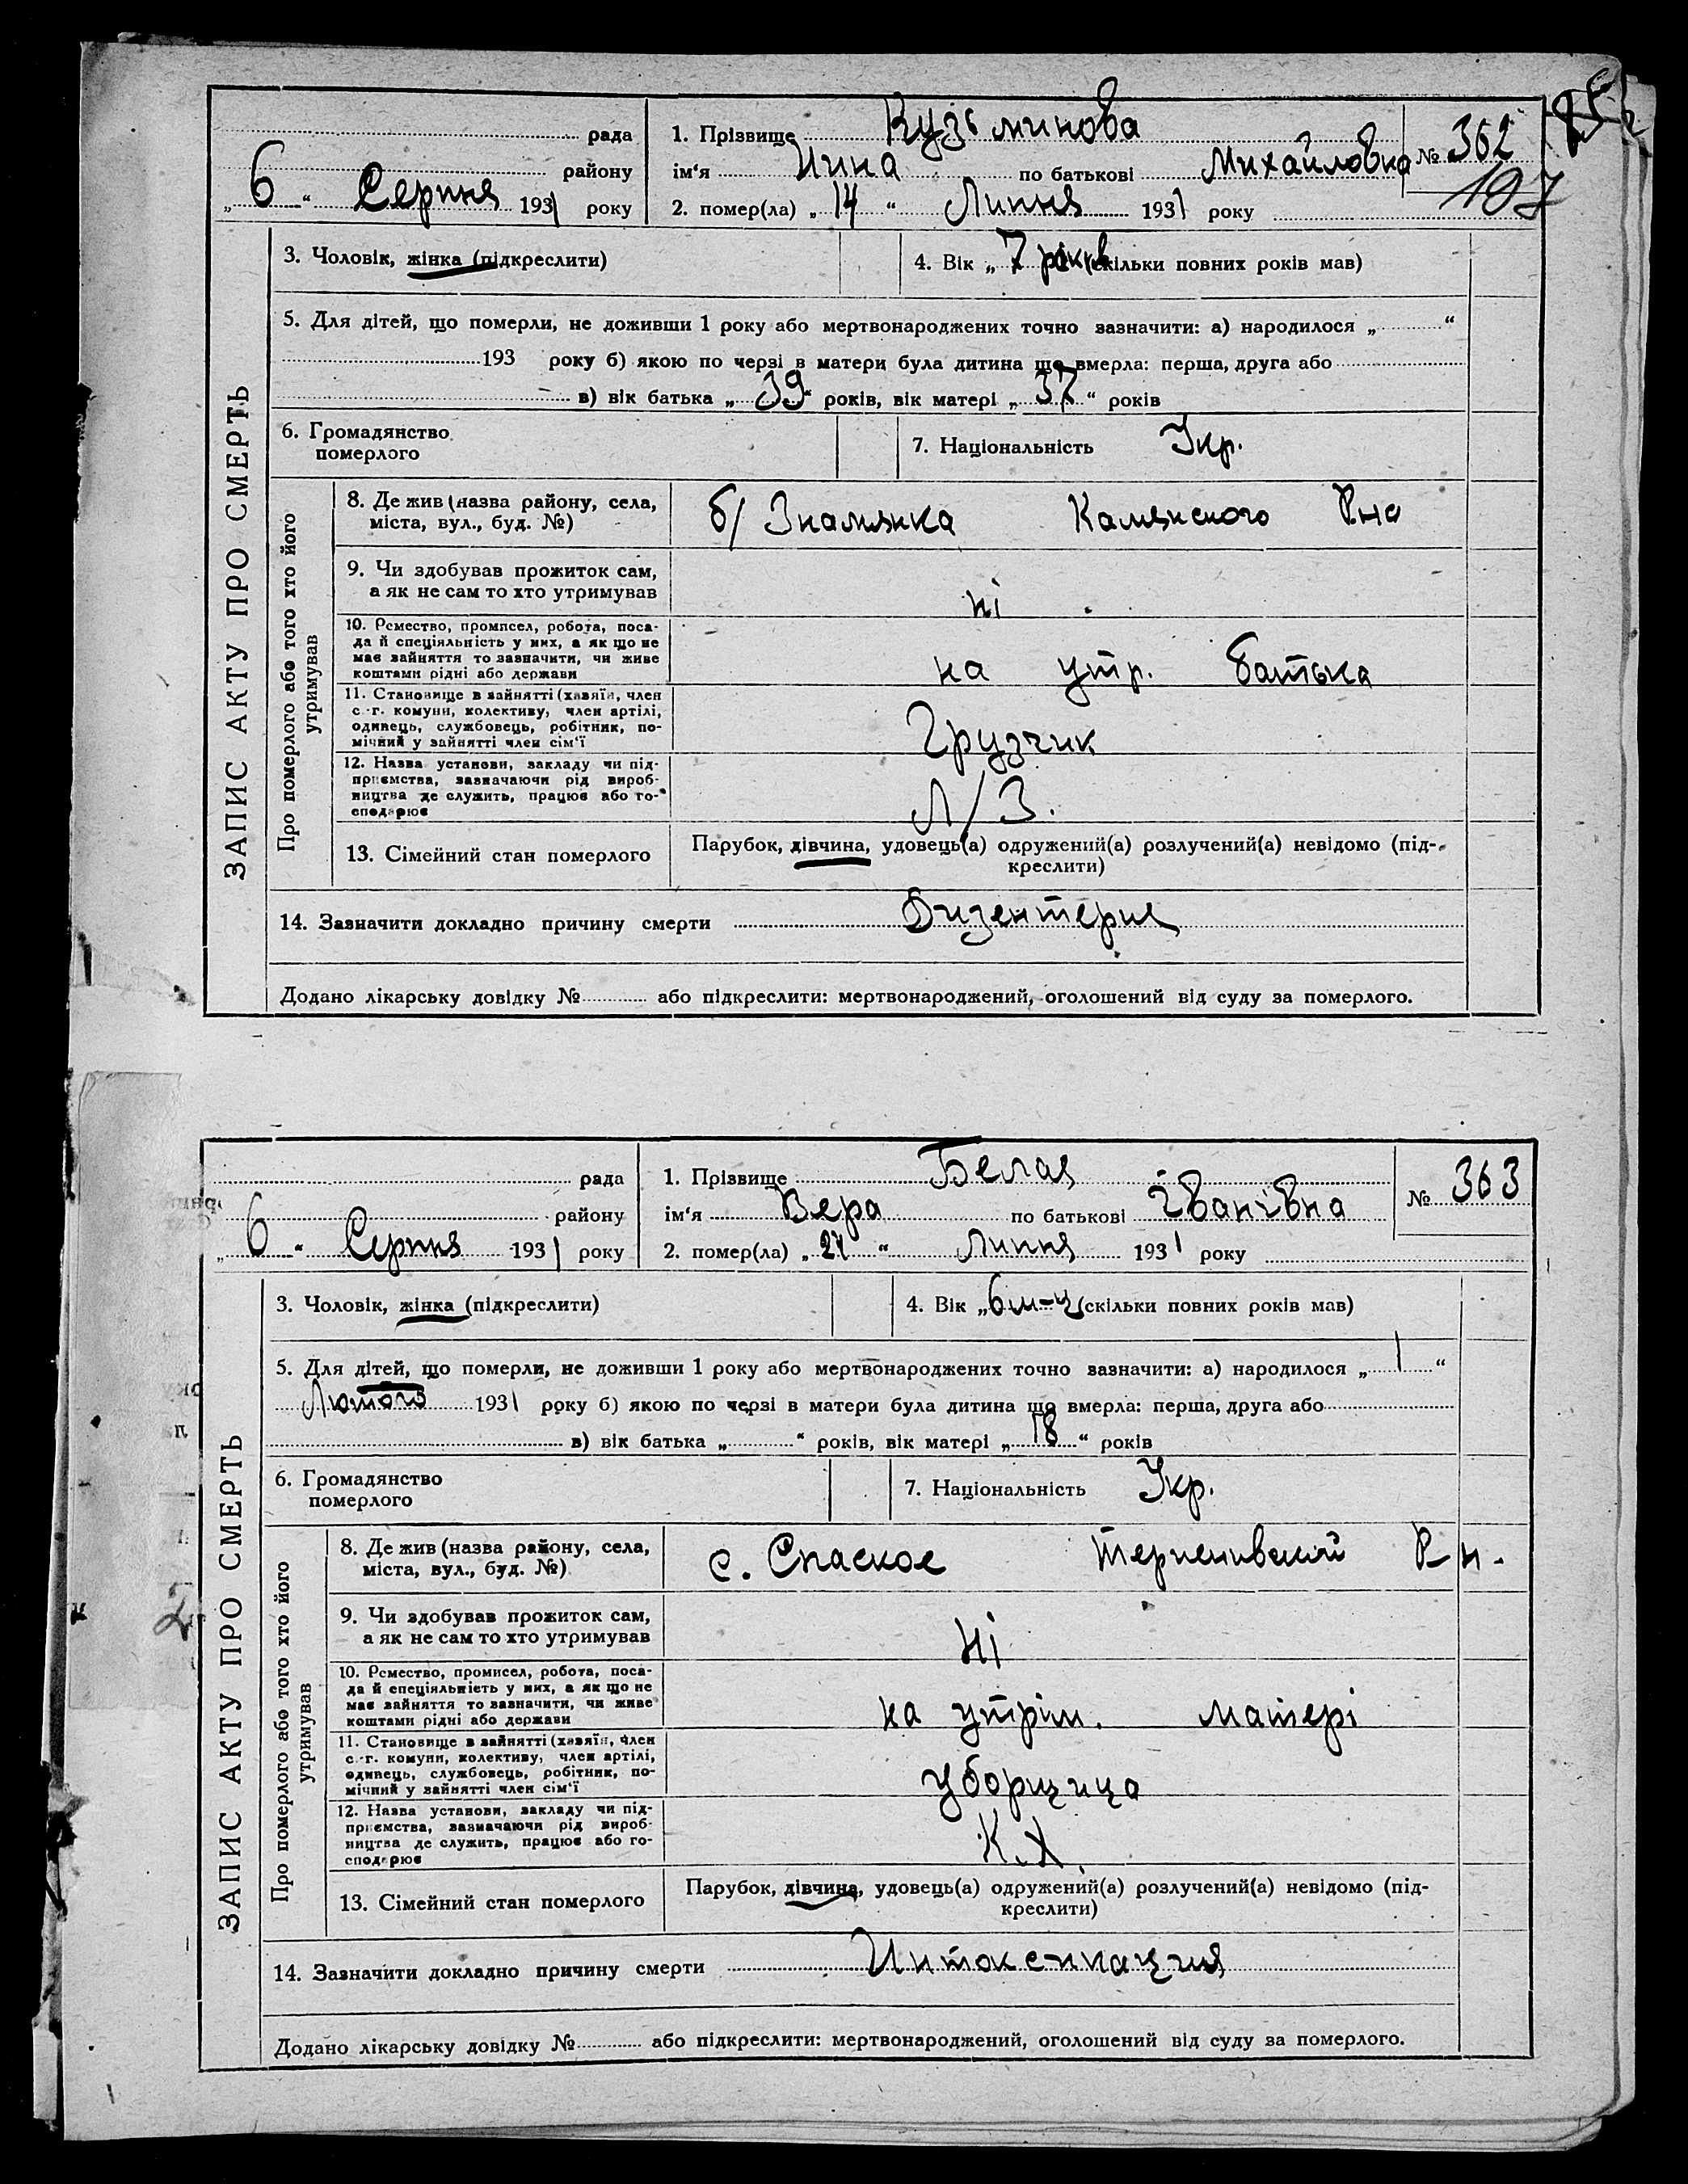 рада
району
„ 6 “ Серпня 1931 року
1. Прізвище Кузьминова
ім‘я Нина по батькові Михайловна
2. помер(ла) „ 14 “ Липня 1931 року
№ 362
197
ЗАПИС АКТУ ПРО СМЕРТЬ
3. Чоловік, жінка (підкреслити)
4. Вік „ 7 років (скільки повних років мав)
5. Для дітей, що померли, не доживши 1 року або мертвонароджених точно зазначити: а) народилося „ “
193 року б) якою по черзі в матери була дитина що вмерла: перша, друга або
в) вік батька „ 39 “ років, вік матері „ 37 “ років
6. Громадянство
померлого
7. Національність Укр.
Про померлого або того хто його
утримував
8. Де жив (назва району, села,
міста, вул., буд. №)
б/ Знамянка Каменского Рна
9. Чи здобував прожиток сам,
а як не сам то хто утримував
ні
10. Ремество, промисел, робота, поса-
да й спеціяльність у них, а як що не
має зайняття то зазначити, чи живе
коштами рідні або держави
на утр. батька
11. Становище в зайнятті (хазяїн, член
с.-г. комуни, колективу, член артілі,
одинець, службовець, робітник, по-
мічний у зайнятті член сім‘ї
Грузчик
12. Назва установи, закладу чи під-
приємства, зазначаючи рід вироб-
ництва де служить, працює або го-
сподарює
Л/З.
13. Сімейний стан померлого
Парубок, дівчина, удовець(а) одружений(а) розлучений(а) невідомо (під-
креслити)
14. Зазначити докладно причину смерти Дизентерия
Додано лікарську довідку № або підкреслити: мертвонароджений, оголошений від суду за померлого.
рада
району
„ 6 “ Серпня 1931 року
1. Прізвище Белая
ім‘я Вера по батькові Іванівна
2. помер(ла) „ 27 “ Липня 1931 року
№ 363
ЗАПИС АКТУ ПРО СМЕРТЬ
3. Чоловік, жінка (підкреслити)
4. Вік „ 6 м-ц (скільки повних років мав)
5. Для дітей, що померли, не доживши 1 року або мертвонароджених точно зазначити: а) народилося „ 1 “
Лютого 1931 року б) якою по черзі в матери була дитина що вмерла: перша, друга або
в) вік батька „ “ років, вік матері „ 18 “ років
6. Громадянство
померлого
7. Національність Укр.
Про померлого або того хто його
утримував
8. Де жив (назва району, села,
міста, вул., буд. №)
с. Спаское Терненивский Р-н.
9. Чи здобував прожиток сам,
а як не сам то хто утримував
Ні
10. Ремество, промисел, робота, поса-
да й спеціяльність у них, а як що не
має зайняття то зазначити, чи живе
коштами рідні або держави
на утрім. матері
11. Становище в зайнятті (хазяїн, член
с.-г. комуни, колективу, член артілі,
одинець, службовець, робітник, по-
мічний у зайнятті член сім‘ї
уборщица
12. Назва установи, закладу чи під-
приємства, зазначаючи рід вироб-
ництва де служить, працює або го-
сподарює
К.Х.
13. Сімейний стан померлого
Парубок, дівчина, удовець(а) одружений(а) розлучений(а) невідомо (під-
креслити)
14. Зазначити докладно причину смерти Интоксикация
Додано лікарську довідку № або підкреслити: мертвонароджений, оголошений від суду за померлого.